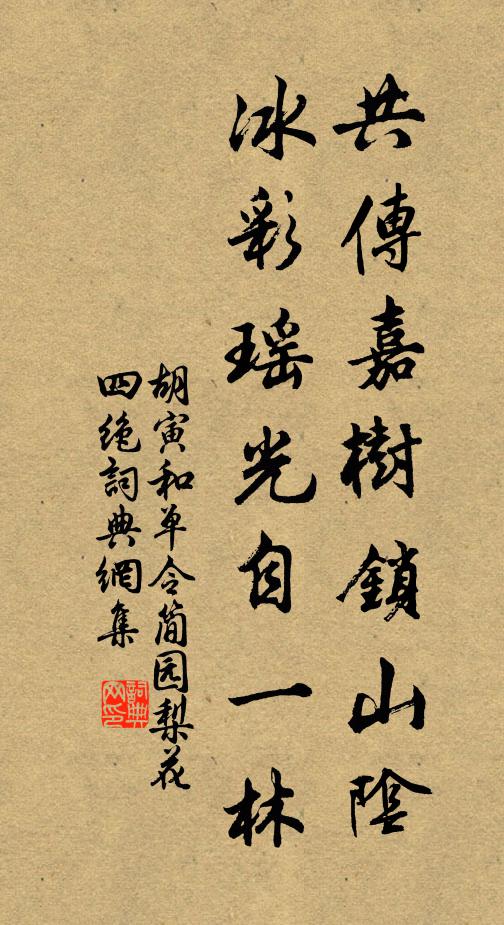 共傳嘉樹鎖山陰
冰彩瑶光自一林
胡寅和单令简园梨花
四绝詞典網集
詞典网印